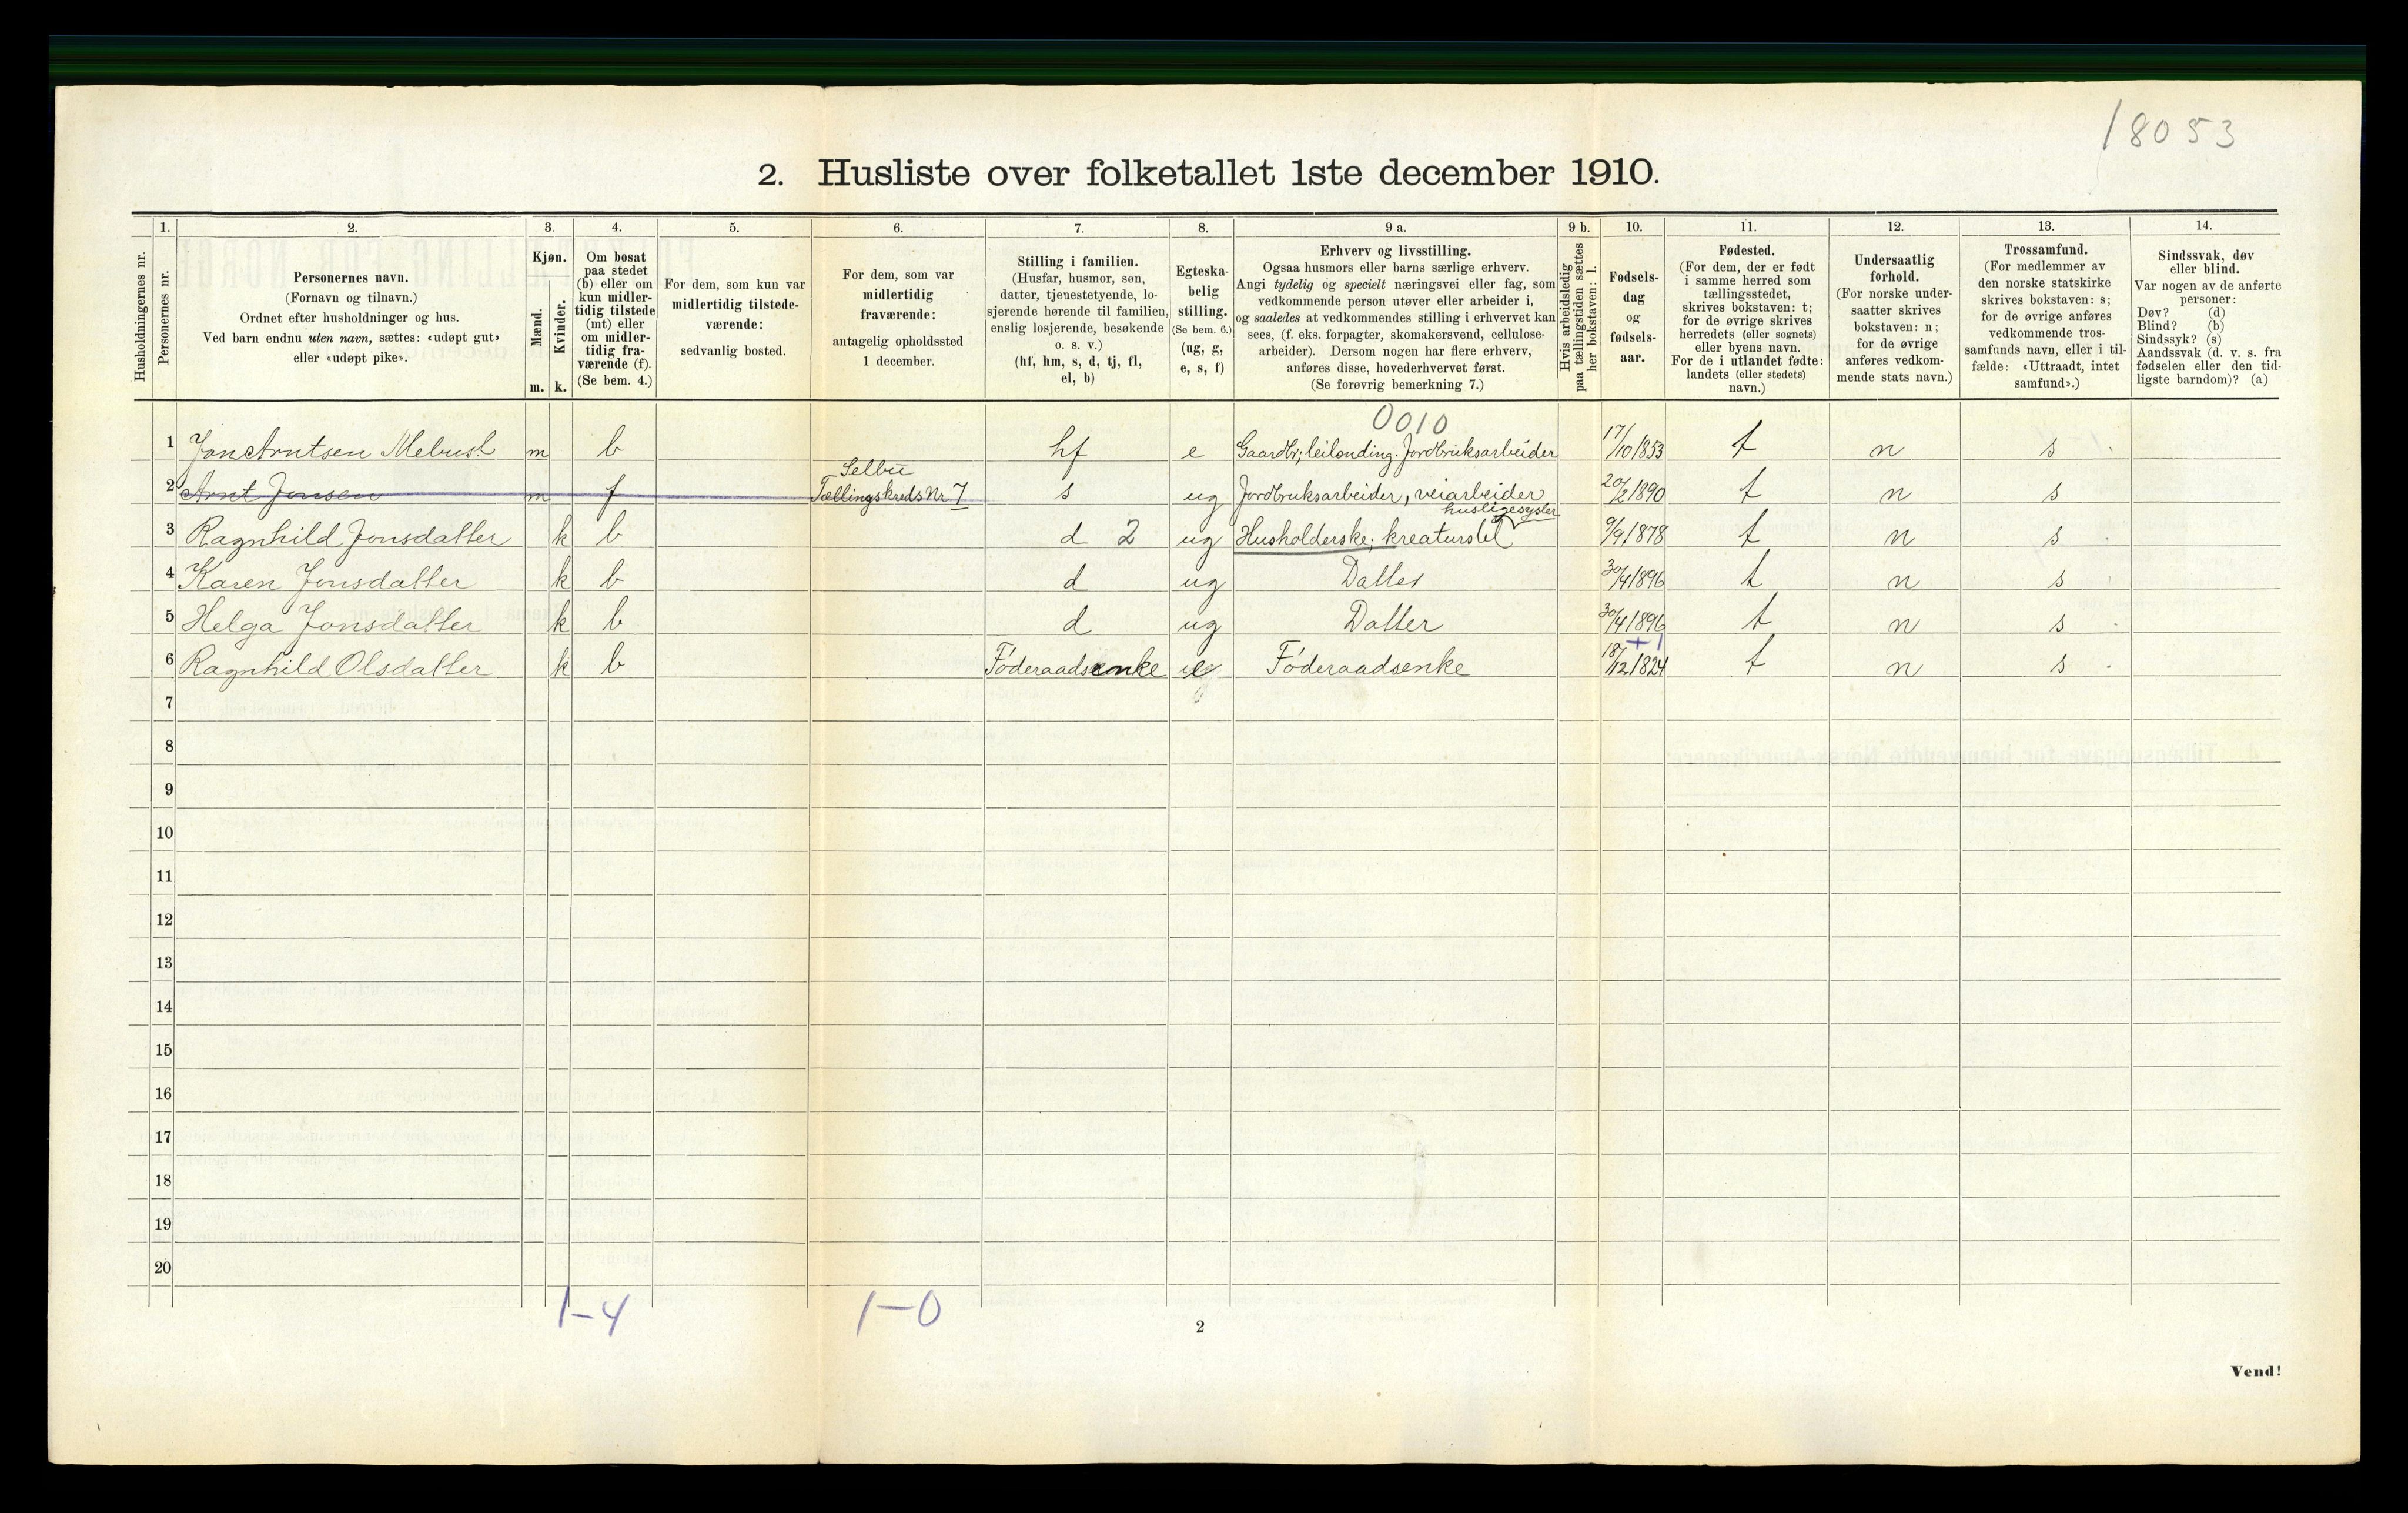 18053
2. Husliste over folketallet 1ste december 1910.
Husholdningernes nr.
1.
Personernes nr.
2.
Personernes navn.
(Fornavn og tilnavn.)
Ordnet efter husholdninger og hus.
Ved barn endnu uten navn, sættes: «udøpt gut»
eller «udøpt pike».
3.
Kjøn.
Mænd.
m.
Kvinder.
k.
4.
Om bosat
paa stedet
(b) eller om
kun midler-
tidig tilstede
(mt) eller
om midler-
tidig fra-
værende (f).
(Se bem. 4.)
5.
For dem, som kun var
midlertidig tilstede-
værende:
sedvanlig bosted.
6.
For dem, som var
midlertidig
fraværende:
antagelig opholdssted
1 december.
7.
Stilling i familien.
(Husfar, husmor, søn,
datter, tjenestetyende, lo-
sjerende hørende til familien,
enslig losjerende, besøkende
o. s. v.)
(hf, hm, s, d, tj, fl,
el, b)
8.
Egteska-
belig
stilling.
(Se bem. 6.)
(ug, g,
e, s, f)
9 a.
Erhverv og livsstilling.
Ogsaa husmors eller barns særlige erhverv.
Angi tydelig og specielt næringsvei eller fag, som
vedkommende person utøver eller arbeider i,
og saaledes at vedkommendes stilling i erhvervet kan
sees, (f. eks. forpagter, skomakersvend, cellulose-
arbeider). Dersom nogen har flere erhverv,
anføres disse, hovederhvervet først.
(Se forøvrig bemerkning 7.)
9 b.
Hvis arbeidsledig
paa tællingstiden sættes
her bokstaven: l.
10.
Fødsels-
dag
og
fødsels-
aar.
11.
Fødested.
(For dem, der er født
i samme herred som
tællingsstedet,
skrives bokstaven: t;
for de øvrige skrives
herredets (eller sognets)
eller byens navn.
For de i utlandet fødte:
landets (eller stedets)
navn.)
12.
Undersaatlig
forhold.
(For norske under-
saatter skrives
bokstaven: n;
for de øvrige
anføres vedkom-
mende stats navn.)
13.
Trossamfund.
(For medlemmer av
den norske statskirke
skrives bokstaven: s;
for de øvrige anføres
vedkommende tros-
samfunds navn, eller i til-
fælde: «Uttraadt, intet
samfund».)
14.
Sindssvak, døv
eller blind.
Var nogen av de anførte
personer:
Døv? (d)
Blind? (b)
Sindssyk? (s)
Aandssvak (d. v. s. fra
fødselen eller den tid-
ligste barndom)? (a)
0010
1 Jon Arntsen Mebust m b hf e Gaardbr; leilending. Jordbruksarbeider 17/10 1853 t n s
Selbu
2 Arnt Jonsen m f Tællingskreds Nr 7 s ug Jordbruksarbeider, veiarbeider 20/2 1890 t n s
husligesysler
3 Ragnhild Jonsdatter k b d 2 ug Husholderske; kreaturstel 9/9 1878 t n s
4 Karen Jonsdatter k b d ug Datter 30/4 1896 t n s
5 Helga Jonsdatter k b d ug Datter 30/4 1896 t n s
+1
6 Ragnhild Olsdatter k b Føderaadsenke e Føderaadsenke 18/12 1824 t n s
7
8
9
10
11
12
13
14
15
16
17
18
19
20
1-4 1-0
2
Vend!